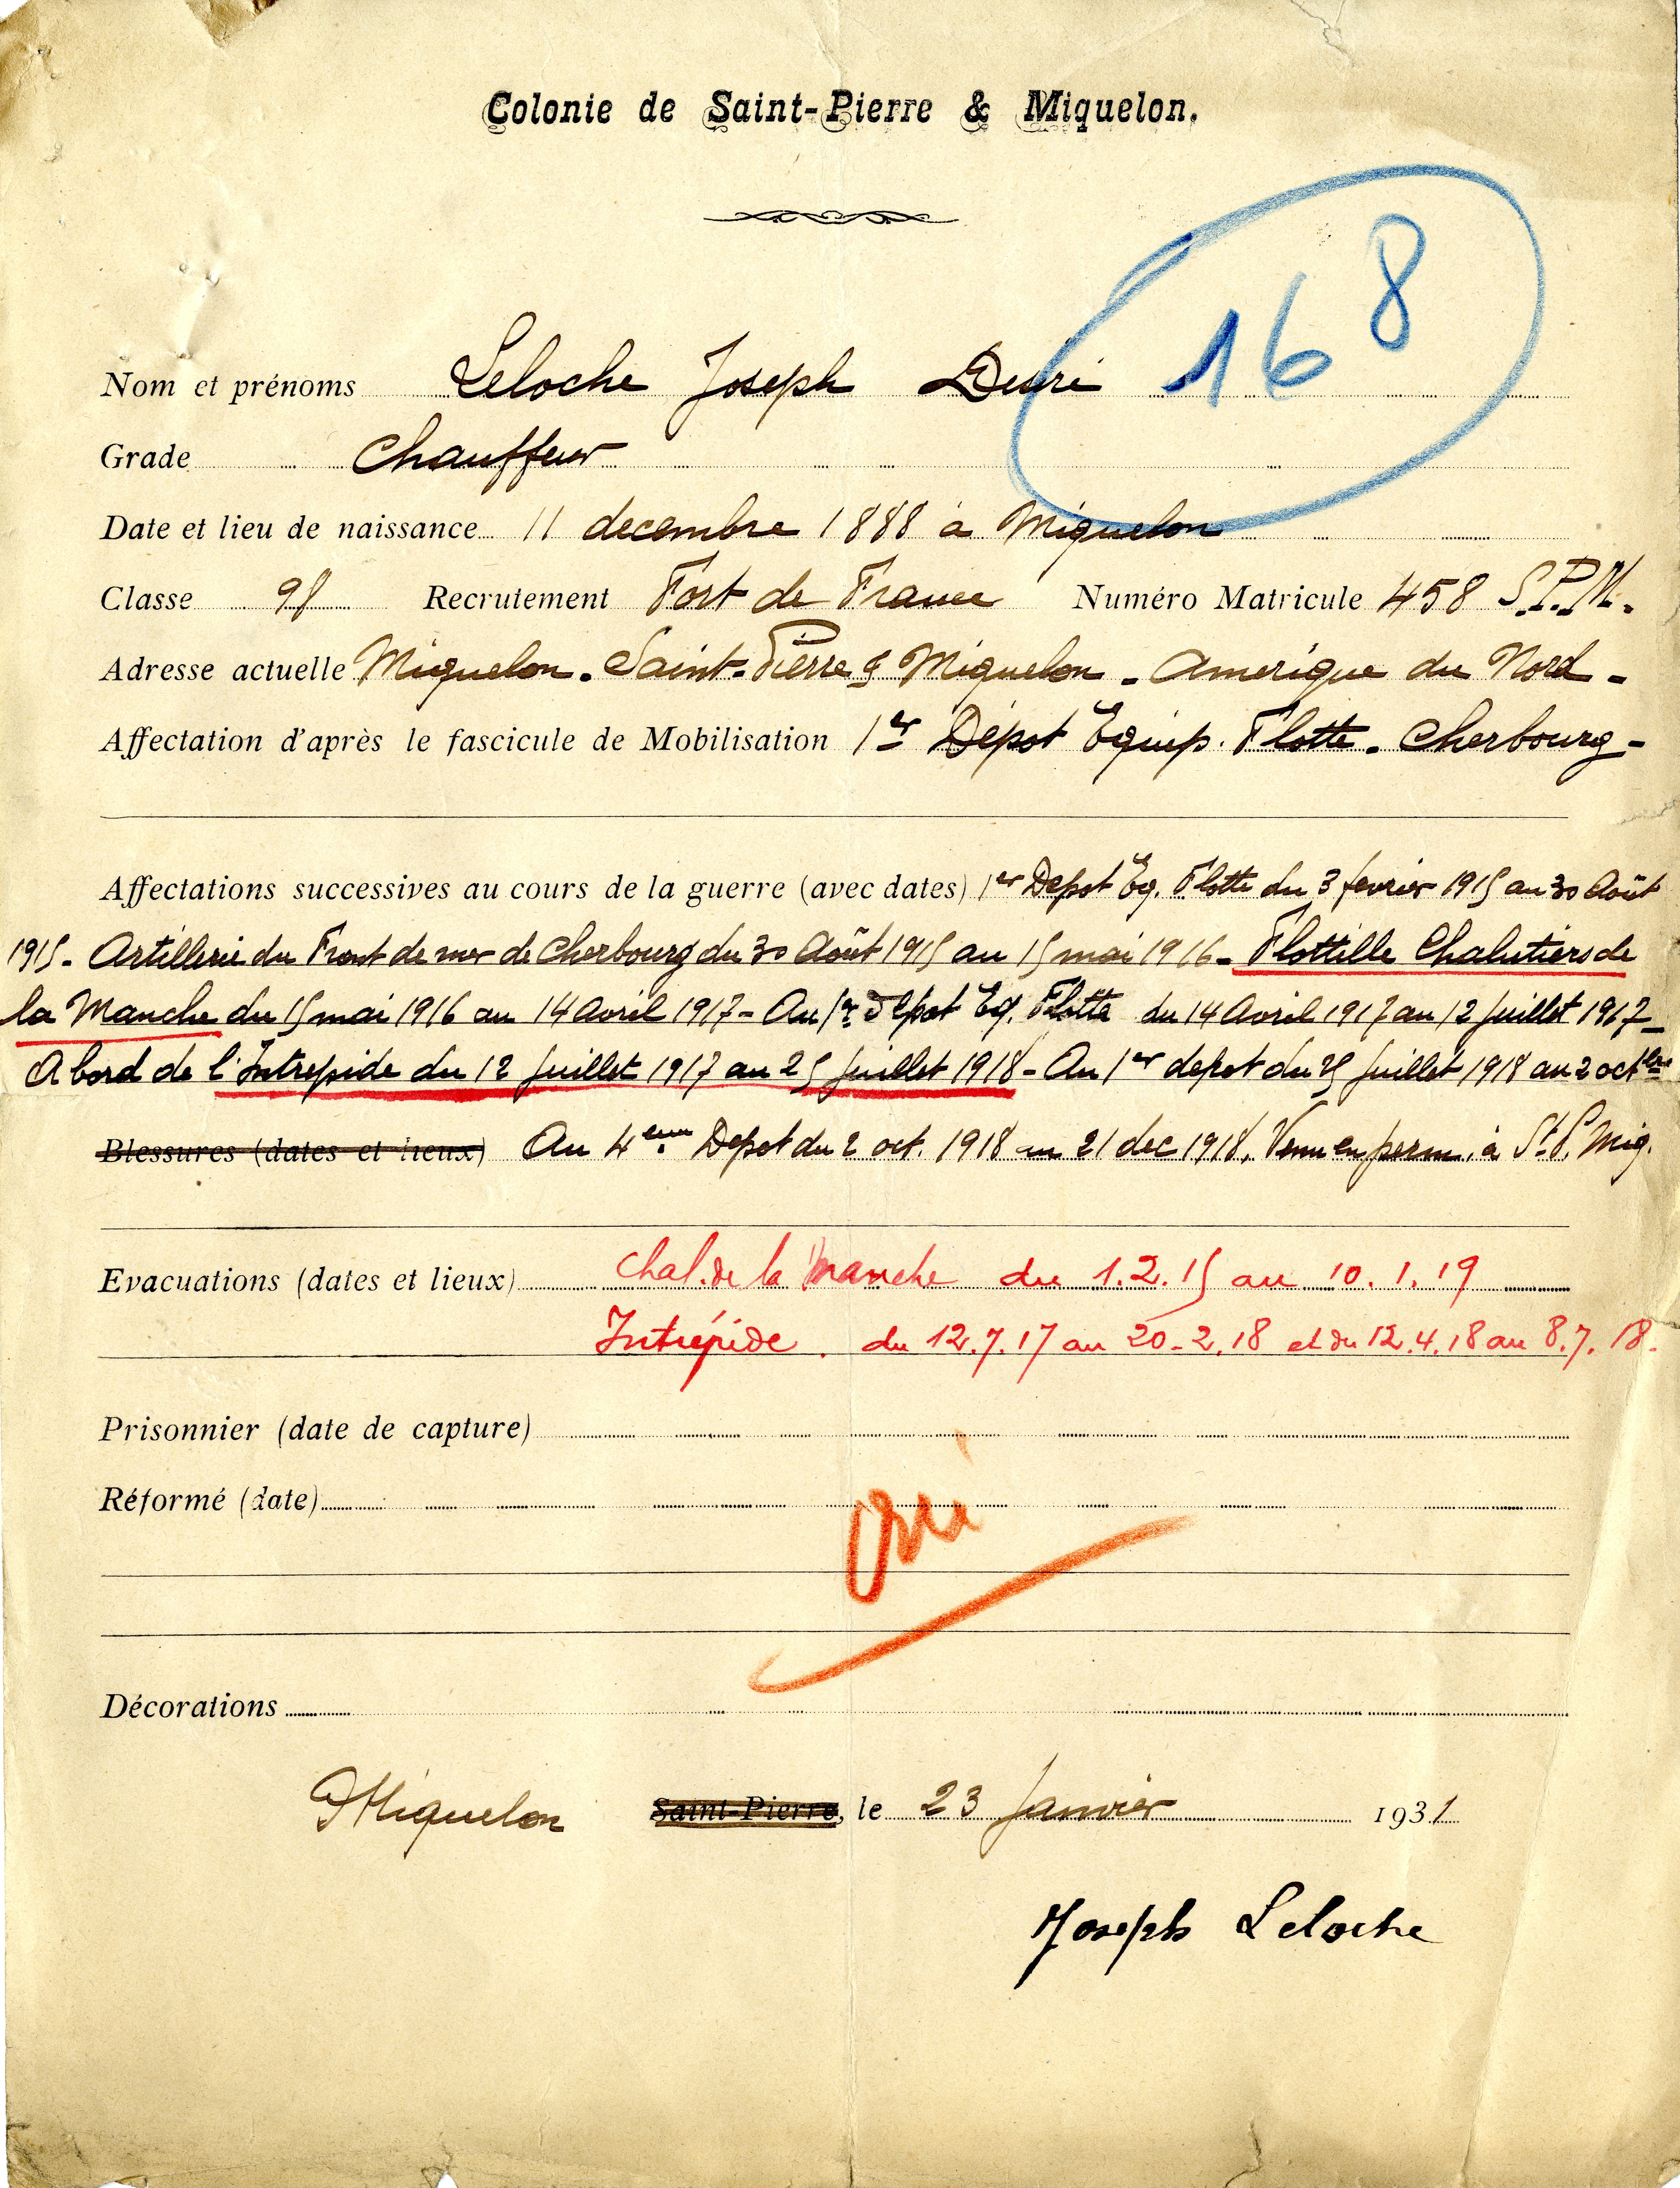 Colonie de Saint-Pierre & Miquelon.
168
Nom et prénoms Leloche Joseph Désiré
Grade Chauffeur
Date et lieu de naissance 11 decembre 1888 à Miquelon
Classe Recrutement Fort de France Numéro Matricule 458 S.P.M.
Adresse actuelle Miquelon. Saint-Pierre & Miquelon - Amerique du Nord -
Affectation d'après le fascicule de Mobilisation 1er Dépot Equip. Flotte. Cherbourg -
Affectations successives au cours de la guerre (avec dates) 1er Depot Eq. Flotte du 3 fevrier 1915 au 30 Août
1915. Artillerie du Front de mer de Cherbourg du 30 Août 1915 au 15 mai 1916 - Flottille Chalutiers de
la Manche du 15 mai 1916 au 14 Avril 1917 - Au 1er Depot Eq. Flotte du 14 Avril 1917 au 12 Juillet 1917 -
A bord de l'Intrepide du 12 Juillet 1917 au 25 Juillet 1918 - Au 1er depot du 25 Juillet 1918 au 2 octbre
Blessures (dates et lieux) Au 4eme Depot du 2 oct. 1918 au 21 dec 1918. Venu en perm. à St P. Miq.
Evacuations (dates et lieux) Chal. de la Manche du 1.2.15 au 10.1.19
Intrépide. du 12.7.17 au 20-2.18 et du 12.4.18 au 8.7.18.
Prisonnier (date de capture)
Réformé (date)
oui
Décorations
Miquelon Saint-Pierre, le 23 Janvier 1931
Joseph Leloche